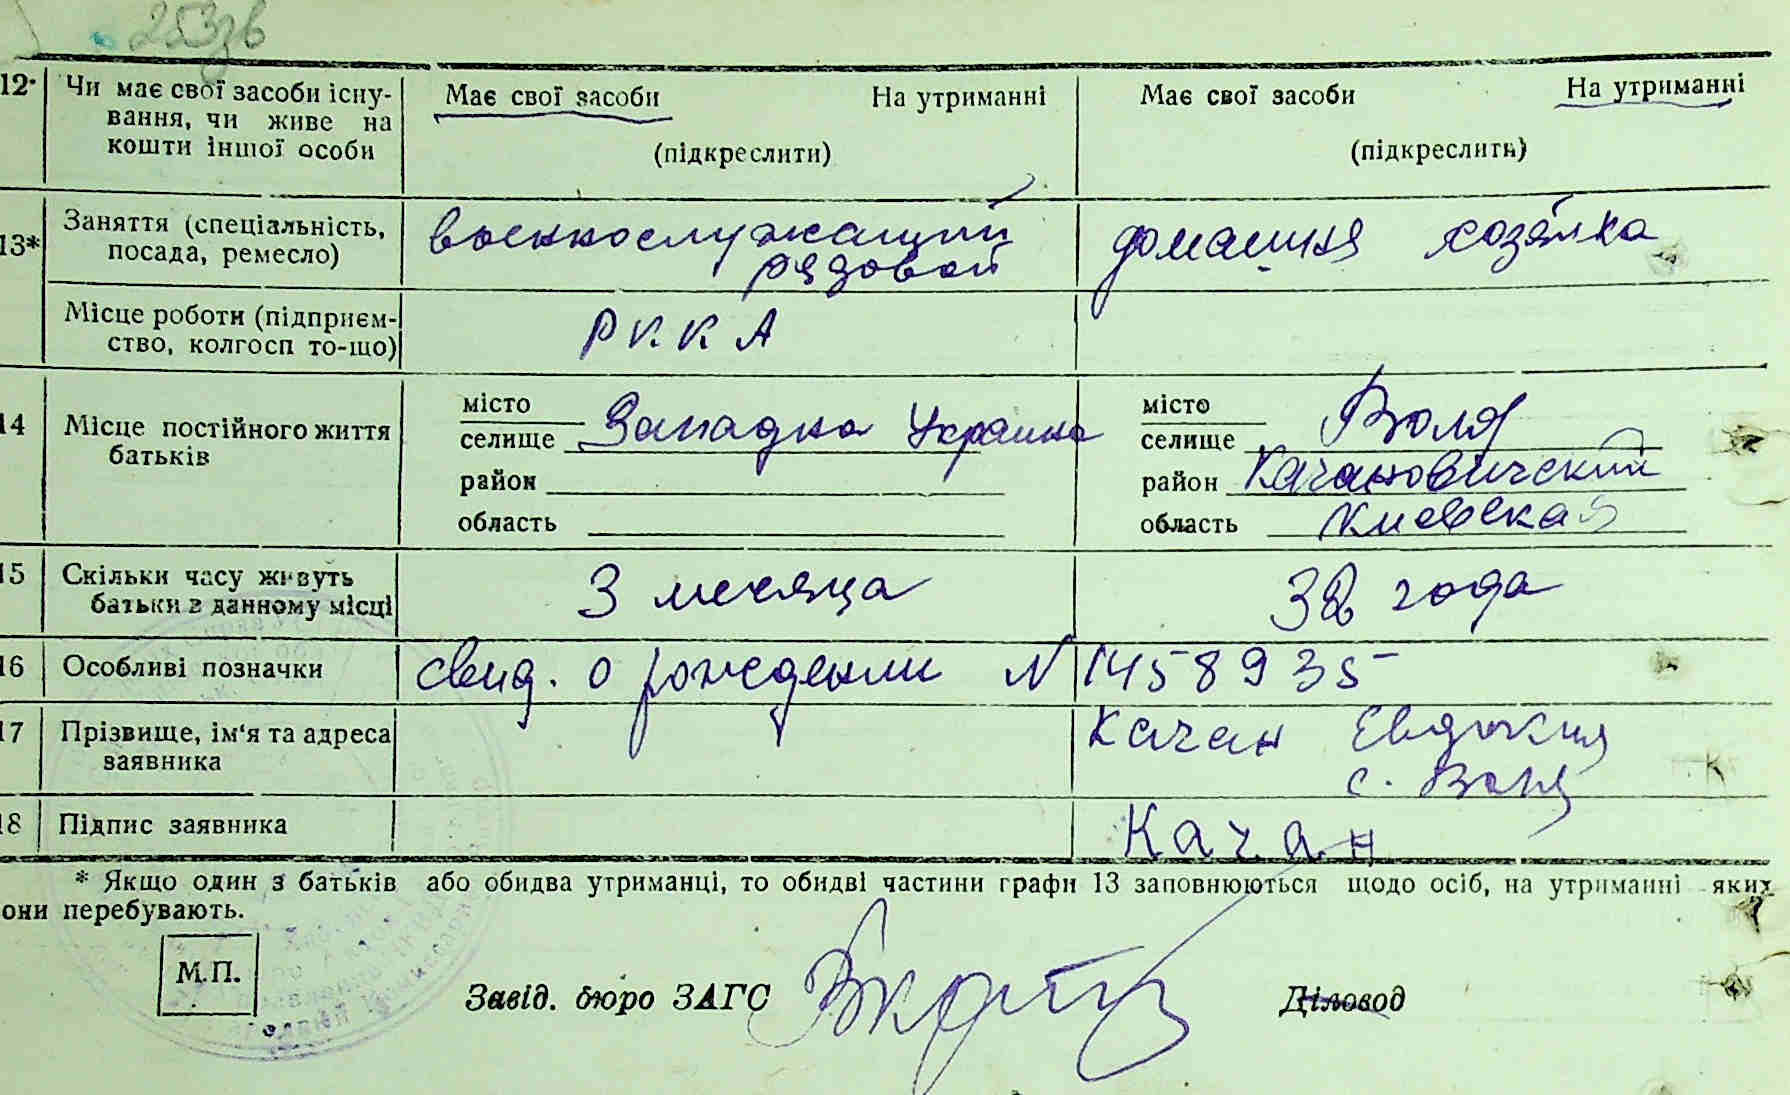 253зв
12* Чи має свої засоби існу- Має свої засоби На утриманні Має свої засоби На утриманні
вання, чи живе на
кошти іншої особи (підкреслити) (підкреслити)
13* Заняття (спеціальність, военнослужащий домашня хозяйка
посада, ремесло) рядовой
Місце роботи (підприєм- РККА
ство, колгосп то-що)
14 Місце постійного життя місто місто
батьків селище Западна Украина селище Воля
район район Качановический
область область Киевская
15 Скільки часу живуть 3 месяца 32 года
батьки в данному місці
16 Особливі позначки свид. о рождении N 1458935
17 Прізвище, ім'я та адреса Качан Евдокия
заявника с. Воля
18 Підпис заявника Качан
* Якщо один з батьків або обидва утриманці, то обидві частини графи 13 заповнюються щодо осіб, на утриманні яких
они перебувають.
М.П.
Завід. бюро ЗАГС Діловод